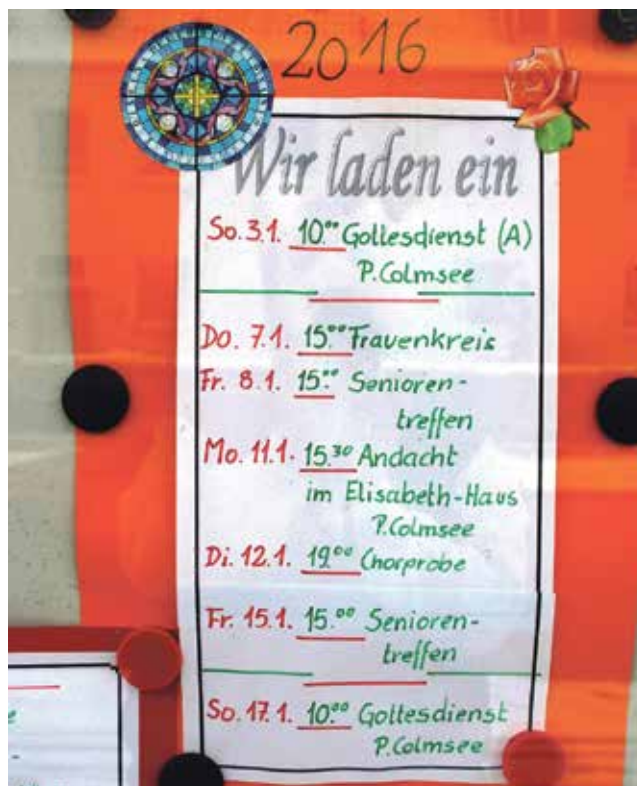 2016
Wir laden ein
So. 3.1. 10.00 Gottesdienst (A)
P. Colmsee
Do. 7.1. 15.00 Frauenkreis
Fr. 8.1. 15.00 Senioren-
treffen
Mo. 11.1. 15.30 Andacht
im Elisabeth-Haus
P. Colmsee
Di. 12.1. 19.00 Chorprobe
Fr. 15.1. 15.00 Senioren-
treffen
So. 17.1. 10.00 Gottesdienst
P. Colmsee